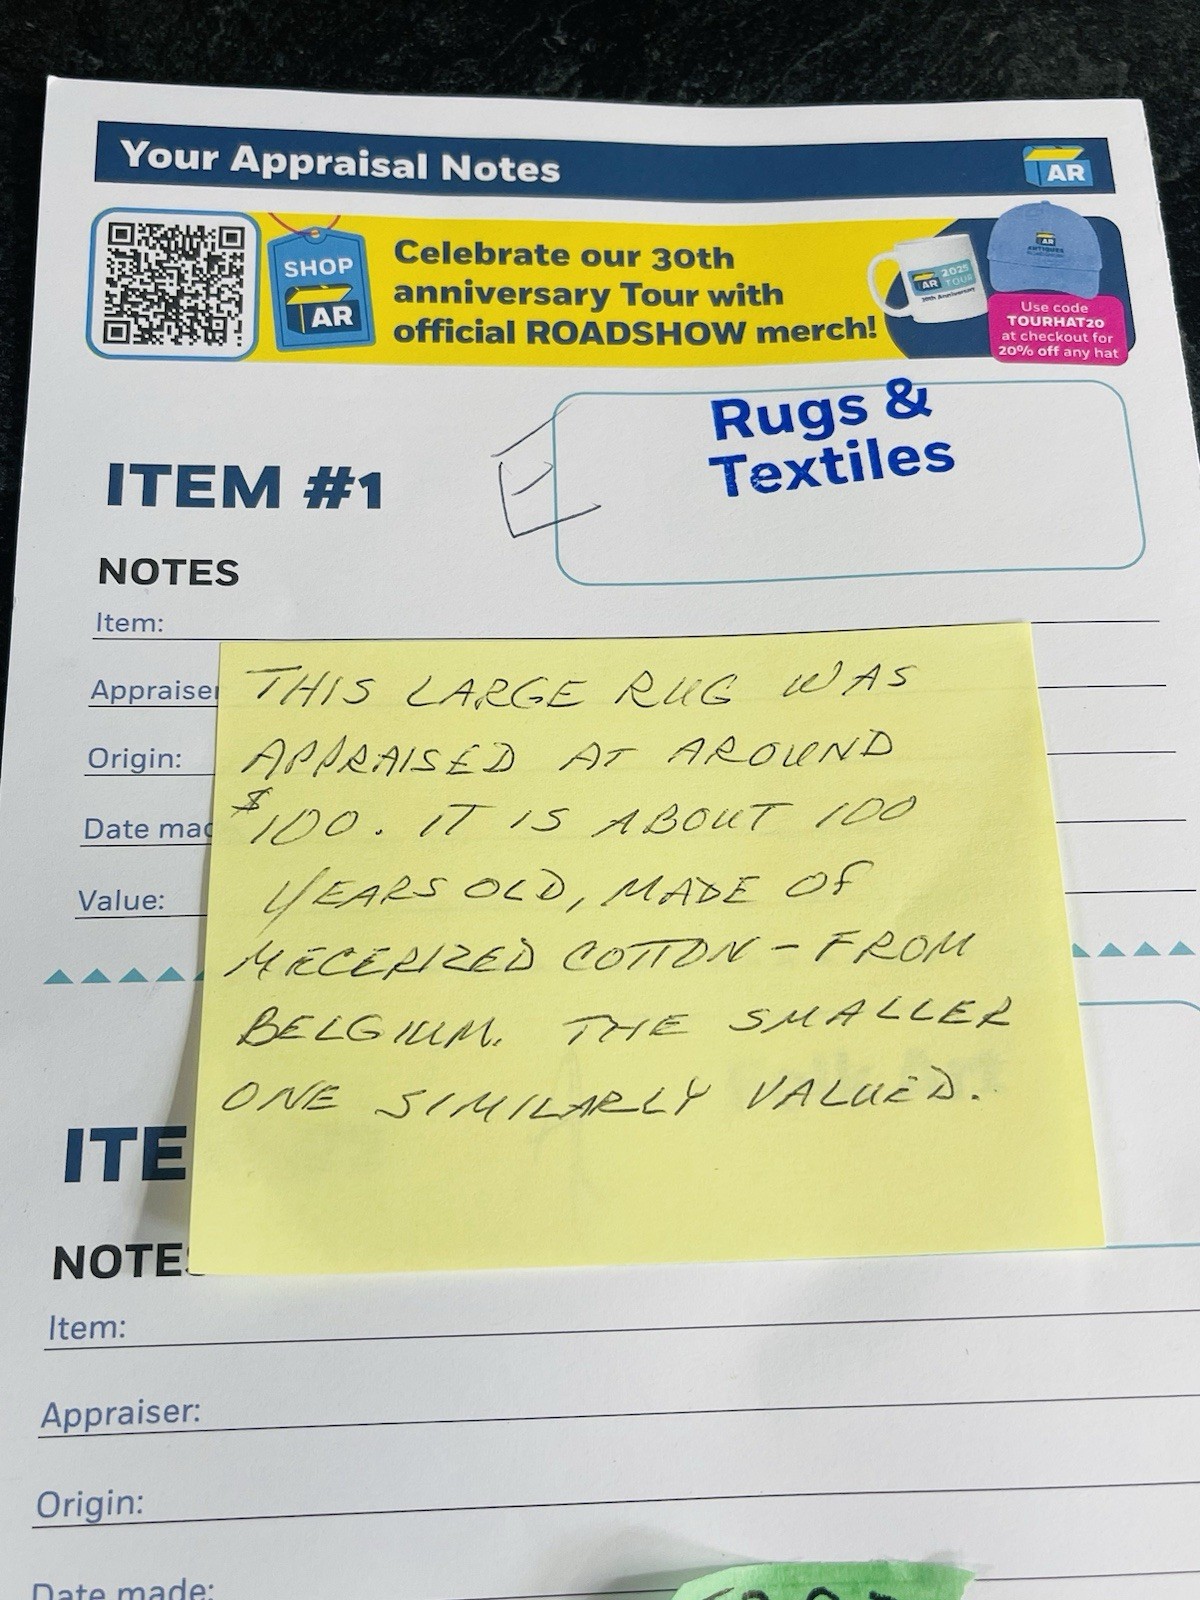 Your Appraisal Notes
AR
SHOP
AR
Celebrate our 30th
anniversary Tour with
official ROADSHOW merch!
AR
2025
TOUR
30th Anniversary
AR
Use code
TOURHAT20
at checkout for
20% off any hat
Rugs &
Textiles
ITEM #1
NOTES
Item:
Appraiser
Origin:
Date mad
Value:
THIS LARGE RUG WAS
APPRAISED AT AROUND
$100. IT IS ABOUT 100
YEARS OLD, MADE OF
MECERIZED COTTON - FROM
BELGIUM. THE SMALLER
ONE SIMILARLY VALUED.
ITE
NOTES
Item:
Appraiser:
Origin:
Date made: